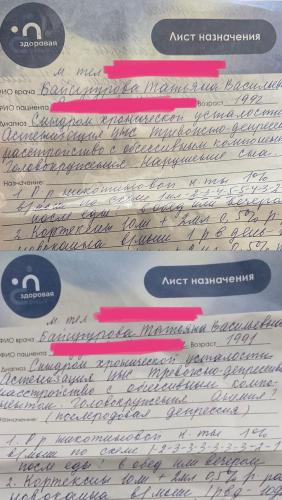 здоровая
Лист назначения
м. тел
ФИО врача Байгурурова Татьяна Василье
ФИО пациента Возраст 1992
Диагноз Синдром хронической усталости
Астенизация ЦНС Тревожно-депресс
расстройство с обсессивным компонен
Головокружения. Нарушение сна
Назначение:
1. Р р никотиновой к.ты 1%
в/мыш по схеме 1мл-2-3-4-5-5-4-3-2
после еды в обед или вечером
2. Кортексин 10м + 2мл 0,5% р
новокаина в/мыш 1 р в день
здоровая
Лист назначения
м. тел
ФИО врача Байгурурова Татьяна Васильевн
ФИО пациента Возраст 1991
Диагноз Синдром хронической усталости
Астенизация ЦНС Тревожно-депрессивн
расстройство с обсессивным компо-
нентом. Головокружения
(послеродовая депрессия)
Назначение:
1. Р р никотиновой к ты 1%
в/мыш по схеме 1-2-3-3-3-3-3-2-1
после еды! в обед или вечером
2. Кортексин 10м + 2мл 0,5% р ра
новокаина в/мыш 1р в